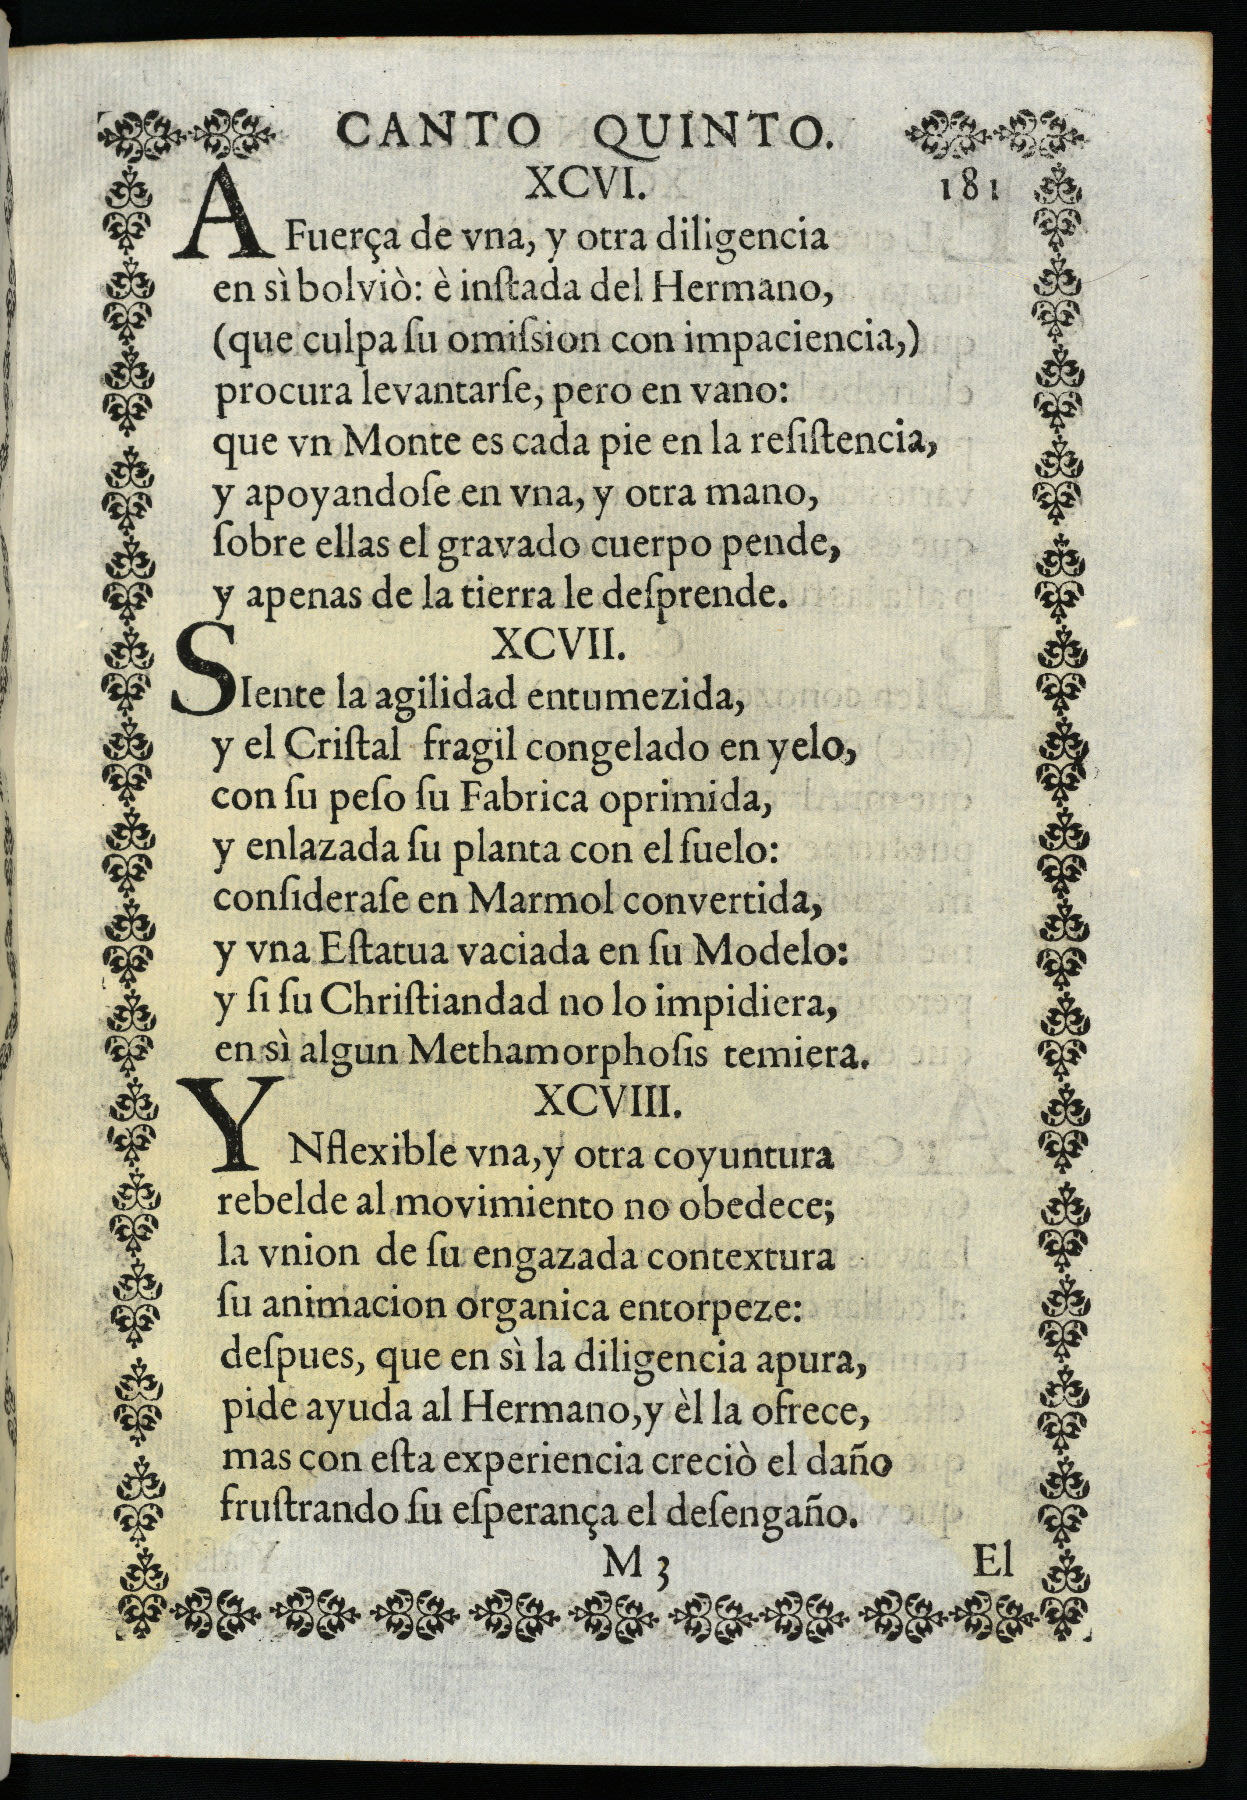 CANTO QUINTO.
XCVI. 181
A Fuerça de vna, y otra diligencia
en sì bolviò: è inſtada del Hermano,
(que culpa ſu omiſsion con impaciencia,)
procura levantarſe, pero en vano:
que vn Monte es cada pie en la reſiſtencia,
y apoyandoſe en vna, y otra mano,
ſobre ellas el gravado cuerpo pende,
y apenas de la tierra le deſprende.
XCVII.
SIente la agilidad entumezida,
y el Criſtal fragil congelado en yelo,
con ſu peſo ſu Fabrica oprimida,
y enlazada ſu planta con el ſuelo:
conſideraſe en Marmol convertida,
y vna Eſtatua vaciada en ſu Modelo:
y ſi ſu Chriſtiandad no lo impidiera,
en sì algun Methamorphoſis temiera.
XCVIII.
YNflexible vna, y otra coyuntura
rebelde al movimiento no obedece;
la vnion de ſu engazada contextura
ſu animacion organica entorpeze:
deſpues, que en sì la diligencia apura,
pide ayuda al Hermano, y èl la ofrece,
mas con eſta experiencia creciò el daño
fruſtrando ſu eſperança el deſengaño.
M 3 El